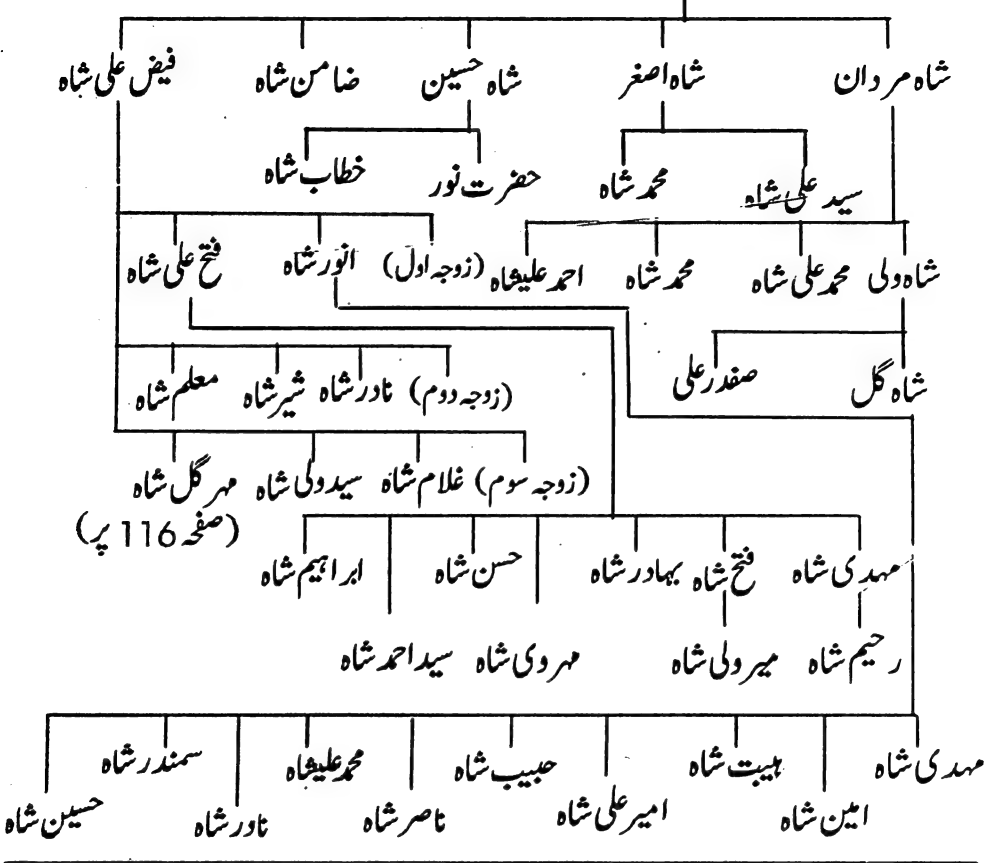 شاہ مردان شاہ اصغر شاہ حسین ضامن شاہ فیض علی شاہ
سید علی شاہ محمد شاہ حضرت نور خطاب شاہ
شاہ ولی محمد علی شاہ محمد شاہ احمد علیشاہ (زوجہ اول) انور شاہ فتح علی شاہ
شاہ گل صفدر علی (زوجہ دوم) نادر شاہ شیر شاہ معلم شاہ
(زوجہ سوم) غلام شاہ سید ولی شاہ مہر گل شاہ
(صفحہ 116 پر)
مہدی شاہ فتح شاہ بہادر شاہ حسن شاہ ابراہیم شاہ
رحیم شاہ میر ولی شاہ مہروی شاہ سید احمد شاہ
مہدی شاہ ہیبت شاہ حبیب شاہ محمد علیشاہ سمندر شاہ
امین شاہ امیر علی شاہ ناصر شاہ نادر شاہ حسین شاہ